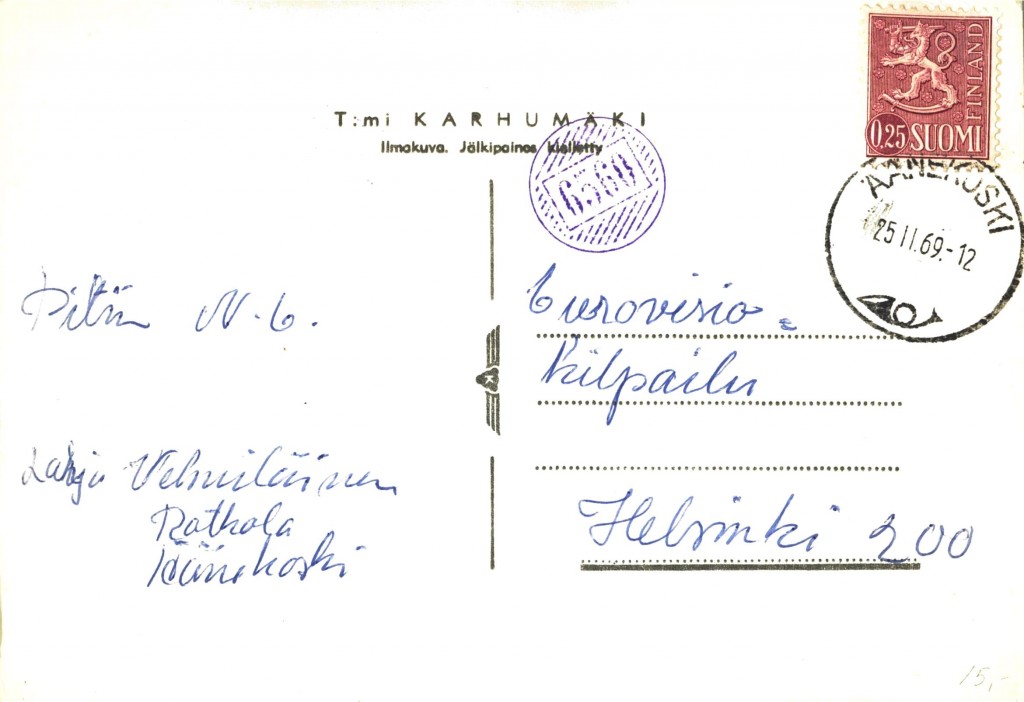 T:mi KARHUMÄKI
Ilmakuva. Jälkipainos kielletty
6560
0,25 SUOMI
FINLAND
ÄÄNEKOSKI
25 II.69.-12
Pitän N. 6.
Eurovisio-
Kilpailu
Helsinki 200
Rotkola
Äänekoski
15,-